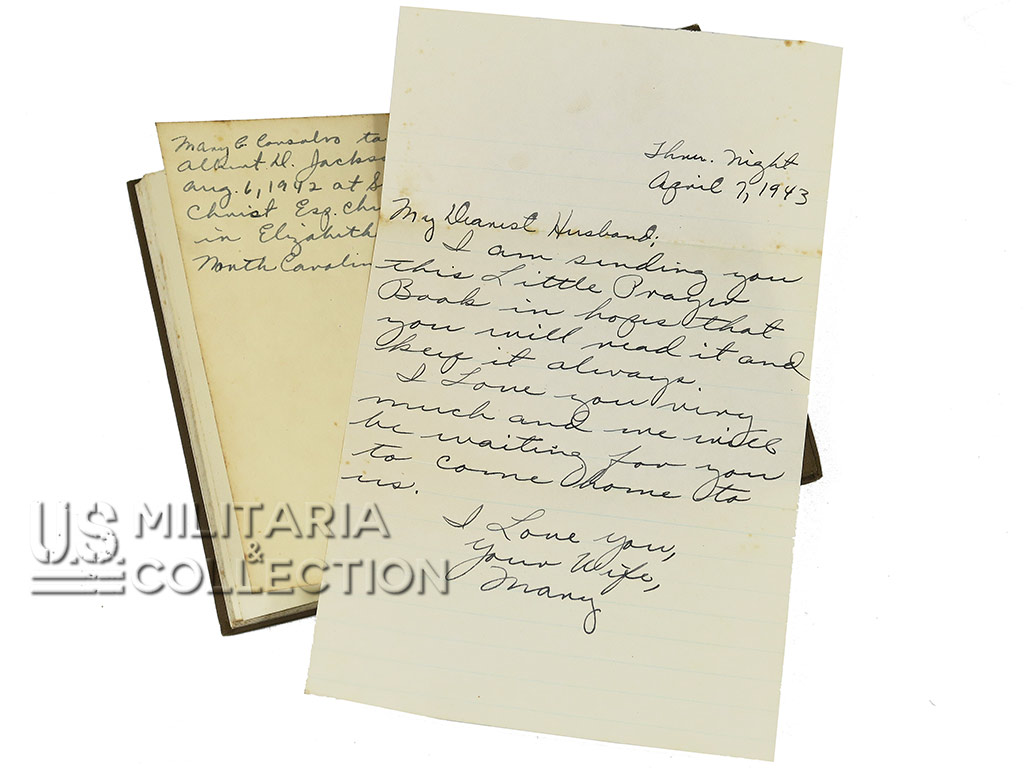 Mary C. Consalvo to
Albert D. Jackso
Aug. 6, 1942 at S
Christ Esq. Chu
in Elizabeth
North Carolin
Thur. Night
April 7, 1943
My Dearest Husband;
I am sending you
this Little Prayer
Book in hopes that
you will read it and
keep it always.
I Love you very
much and we will
be waiting for you
to come home to
us.
I Love you,
Your Wife,
Mary
U.S. MILITARIA
& COLLECTION